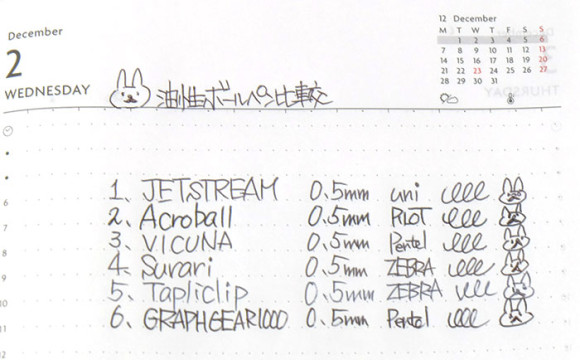 December
2
WEDNESDAY
12 December
M T W T F S S
1 2 3 4 5 6
7 8 9 10 11 12 13
14 15 16 17 18 19 20
21 22 23 24 25 26 27
28 29 30 31
油性ボールペン比較
1、JETSTREAM 0.5mm uni
2、Acroball 0.5mm PILOT
3、VICUNA 0.5mm Pentel
4、Surari 0.5mm ZEBRA
5、Tapliclip 0.5mm ZEBRA
6、GRAPHGEAR1000 0.5mm Pentel
6
7
8
9
10
11
12